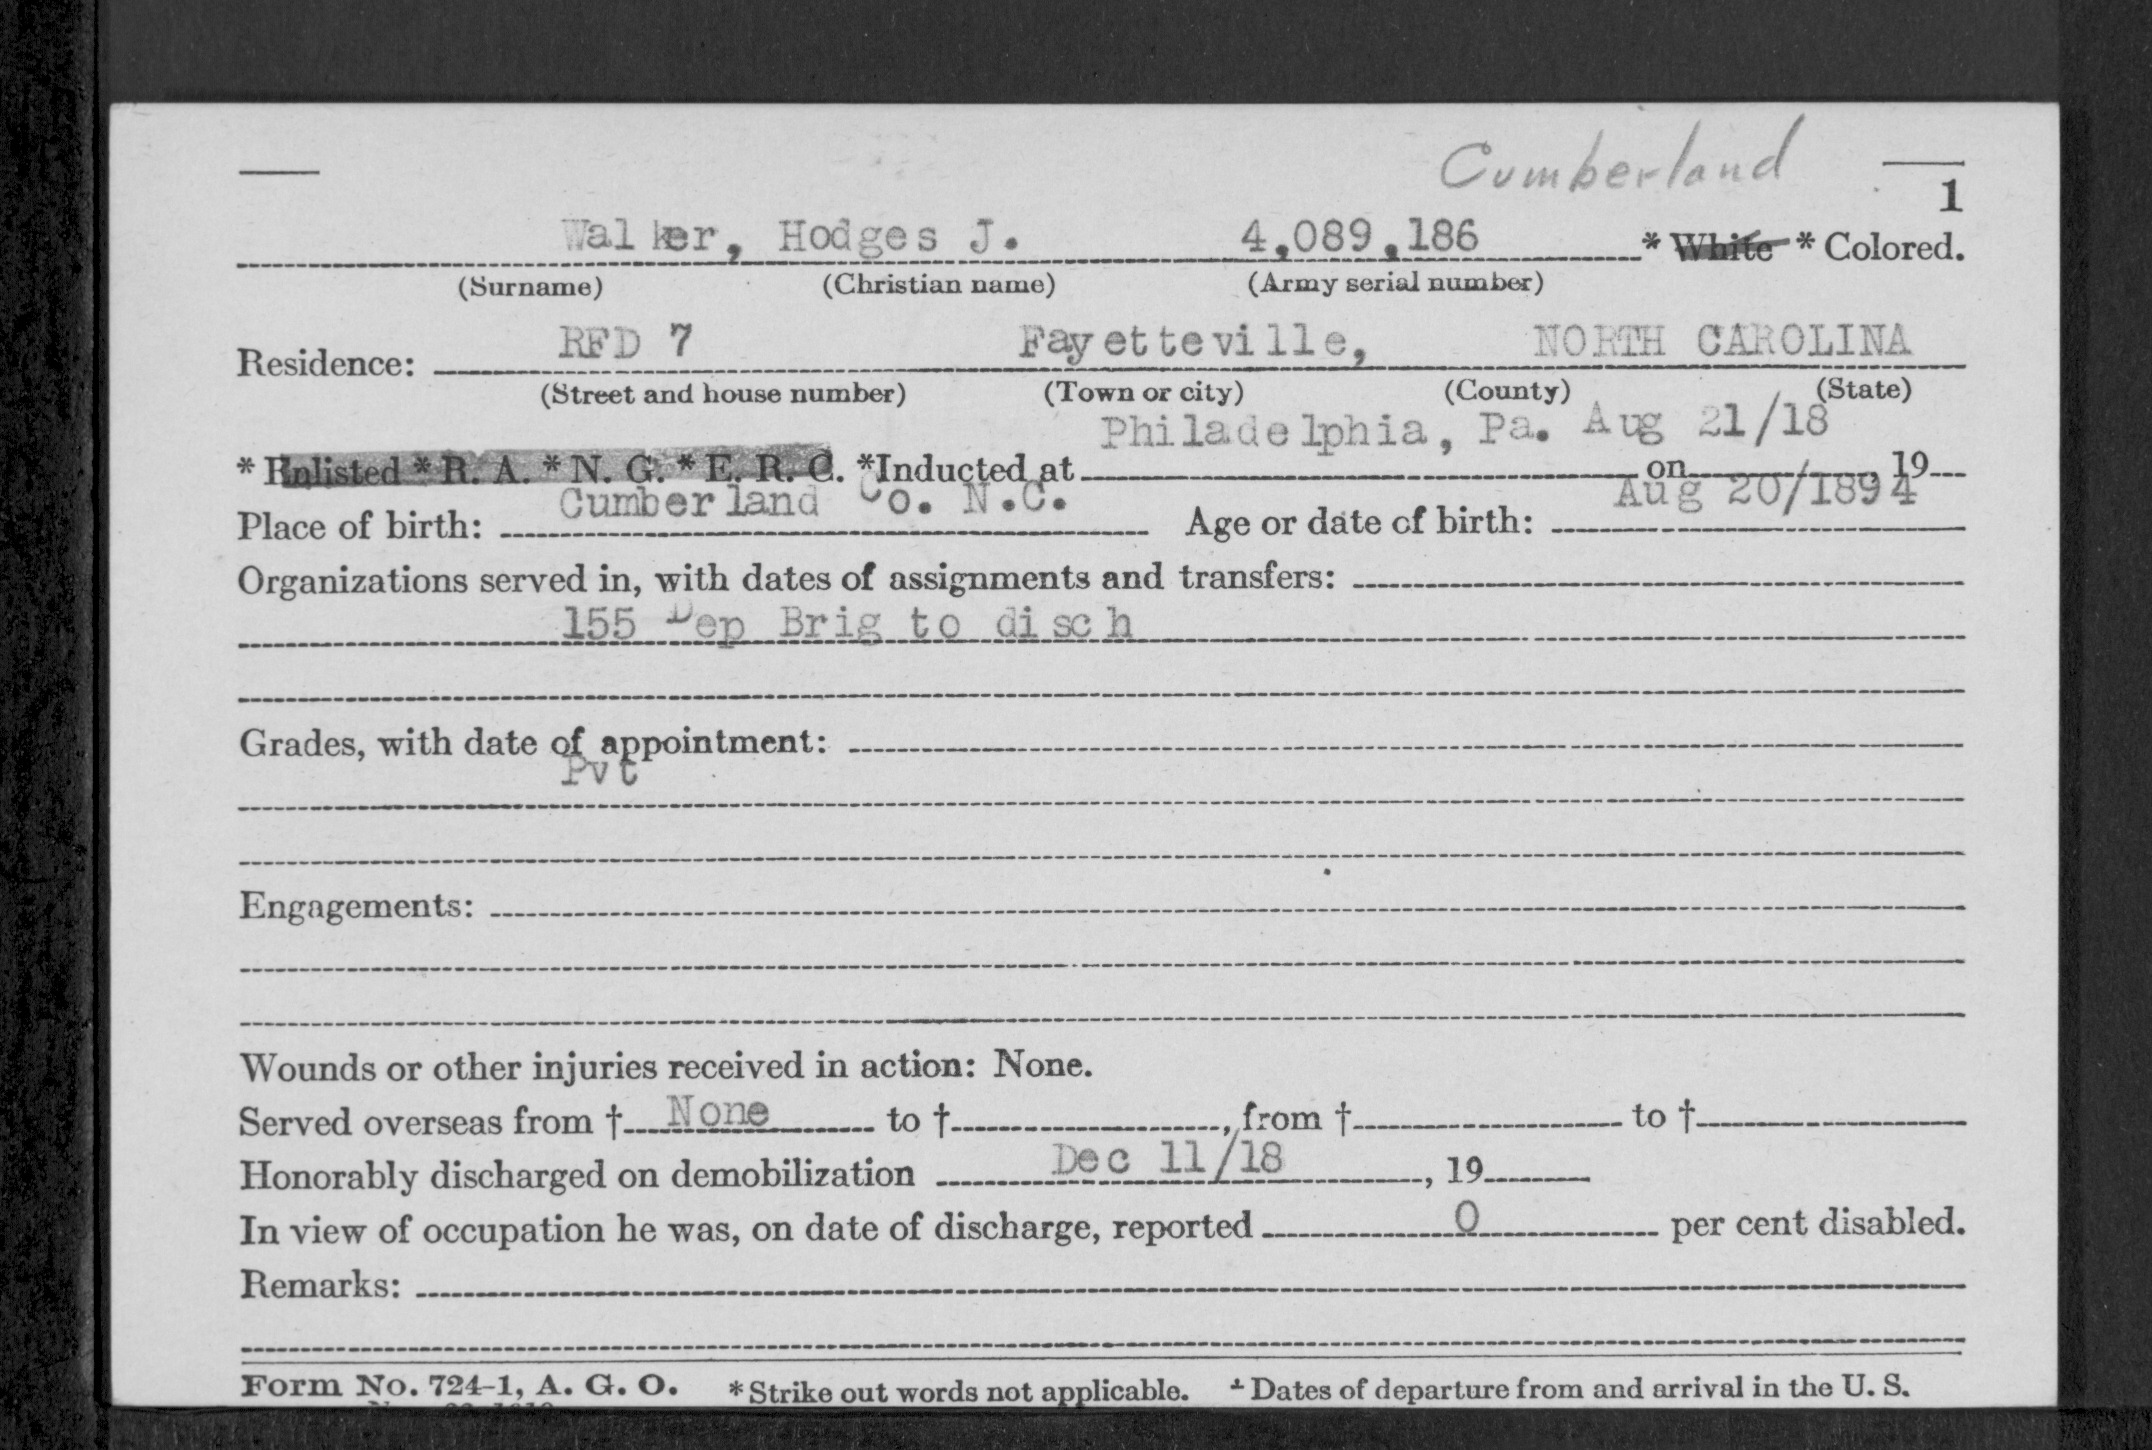 Cumberland
1
Walker, Hodges J. 4,089,186 * White * Colored.
(Surname) (Christian name) (Army serial number)
RFD 7 Fayetteville, NORTH CAROLINA
Residence:
(Street and house number) (Town or city) (County) (State)
Philadelphia, Pa. Aug 21/18
* Enlisted * R. A. * N. G. * E. R. C. *Inducted at on , 19
Cumberland Co. N.C. Aug 20/1894
Place of birth: Age or date of birth:
Organizations served in, with dates of assignments and transfers:
155 Dep Brig to disch
Grades, with date of appointment:
Pvt
Engagements:
Wounds or other injuries received in action: None.
Served overseas from † None to † , from † to †
Honorably discharged on demobilization Dec 11/18 , 19
In view of occupation he was, on date of discharge, reported 0 per cent disabled.
Remarks:
Form No. 724-1, A. G. O. * Strike out words not applicable. † Dates of departure from and arrival in the U. S.